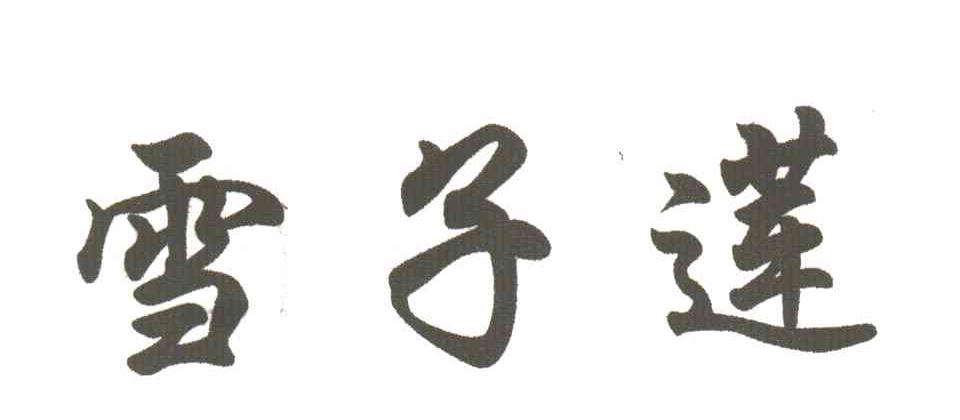 雪子莲